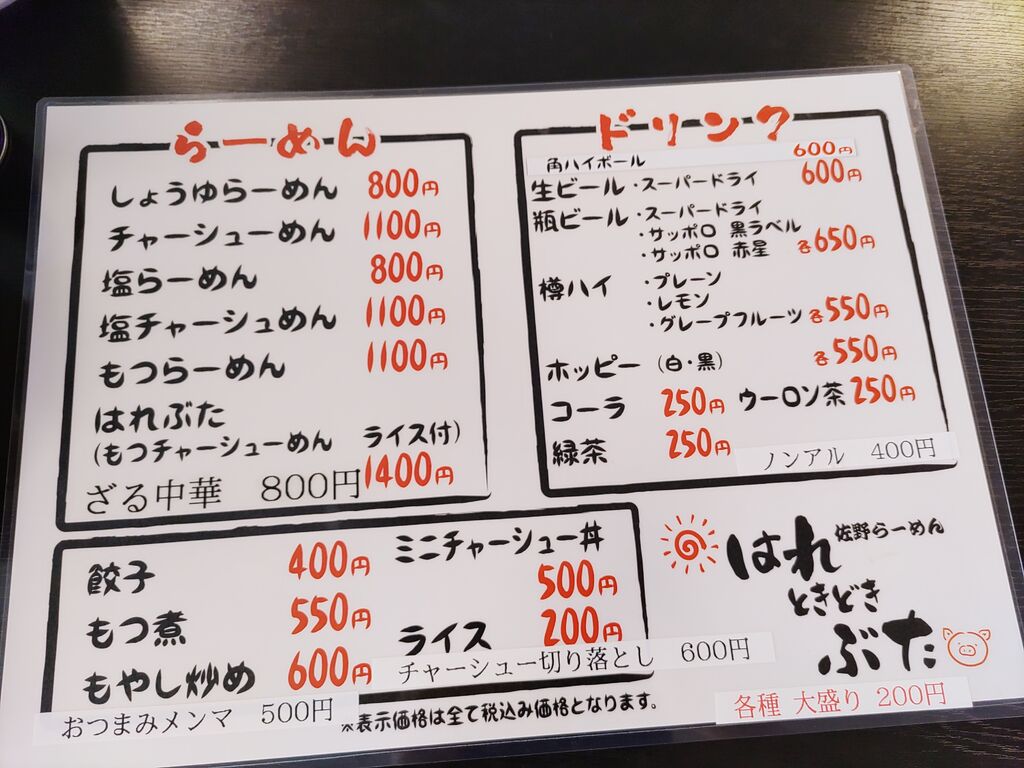 らーめん
しょうゆらーめん 800円
チャーシューめん 1100円
塩らーめん 800円
塩チャーシュめん 1100円
もつらーめん 1100円
はれぶた
(もつチャーシューめん ライス付)
1400円
ざる中華 800円
ドリンク
角ハイボール 600円
生ビール・スーパードライ 600円
瓶ビール・スーパードライ
・サッポロ 黒ラベル
・サッポロ 赤星 各650円
樽ハイ ・プレーン
・レモン
・グレープフルーツ 各550円
ホッピー (白・黒) 各550円
コーラ 250円 ウーロン茶 250円
緑茶 250円
ノンアル 400円
餃子 400円
もつ煮 550円
もやし炒め 600円
おつまみメンマ 500円
ミニチャーシュー丼
500円
ライス 200円
チャーシュー切り落とし 600円
※表示価格は全て税込み価格となります。
佐野らーめん
はれ
ときどき
ぶた
各種 大盛り 200円